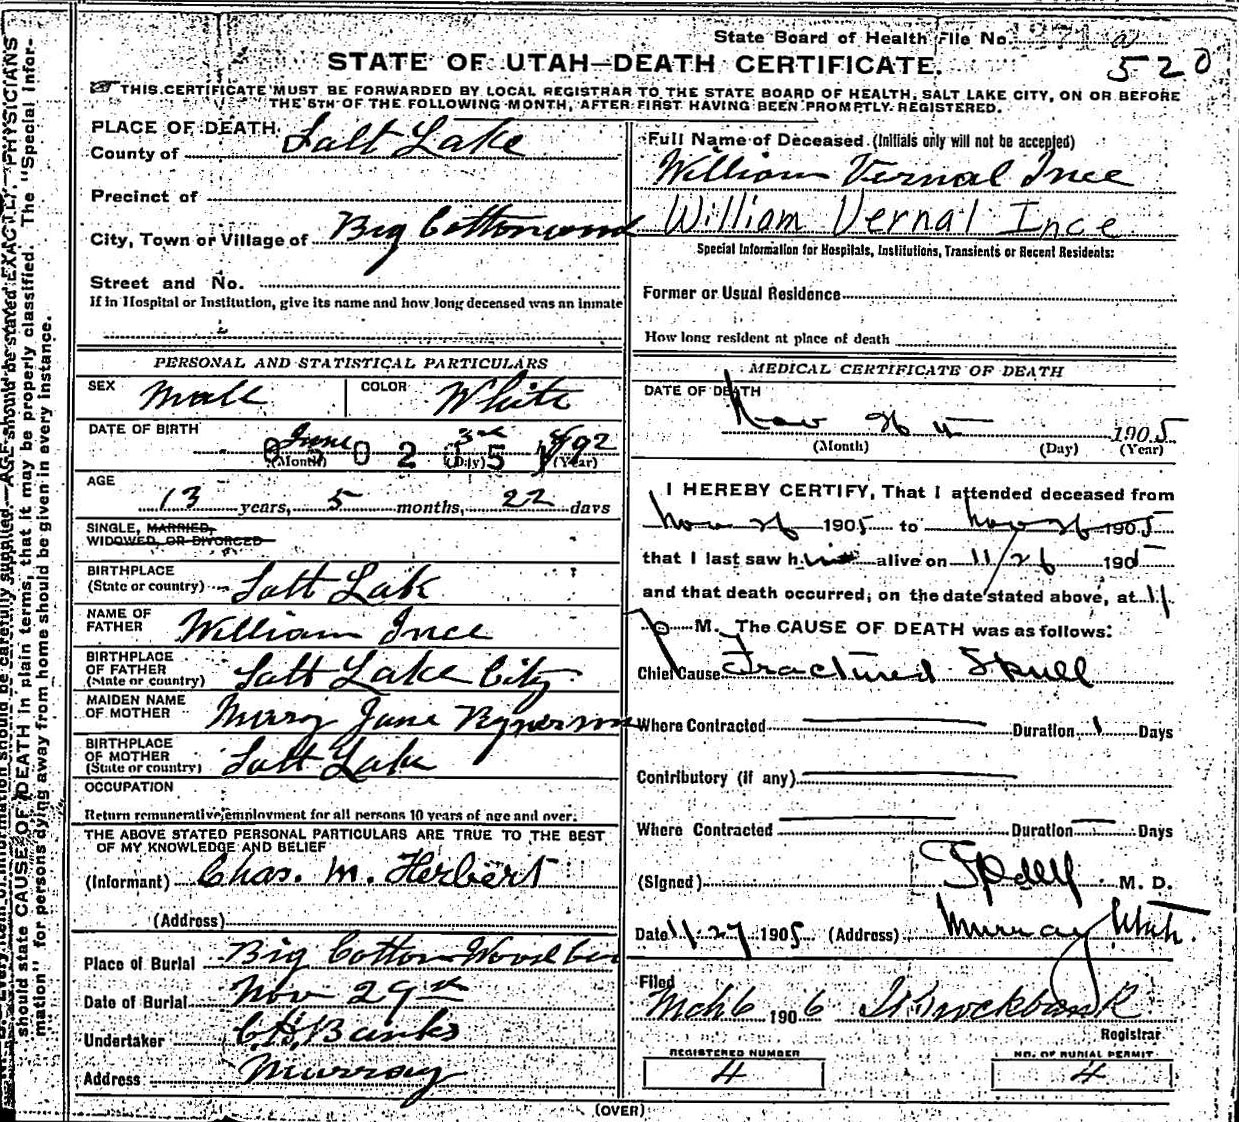 State Board of Health File No. 1371 a
520
STATE OF UTAH—DEATH CERTIFICATE.
THIS CERTIFICATE MUST BE FORWARDED BY LOCAL REGISTRAR TO THE STATE BOARD OF HEALTH, SALT LAKE CITY, ON OR BEFORE
THE 5TH OF THE FOLLOWING MONTH, AFTER FIRST HAVING BEEN PROMPTLY REGISTERED.
PLACE OF DEATH.
County of Salt Lake
Precinct of
City, Town or Village of Big Cottonwood
Street and No.
If in Hospital or Institution, give its name and how long deceased was an inmate
PERSONAL AND STATISTICAL PARTICULARS
SEX Male COLOR White
DATE OF BIRTH June 3rd 1892
(Month) (Day) (Year)
AGE
13 years, 5 months, 22 days
SINGLE, MARRIED,
WIDOWED, OR DIVORCED
BIRTHPLACE
(State or country) Salt Lake
NAME OF
FATHER William Ince
BIRTHPLACE
OF FATHER
(State or country) Salt Lake City
MAIDEN NAME
OF MOTHER Jane
BIRTHPLACE
OF MOTHER
(State or country) Salt Lake
OCCUPATION
Return remunerative employment for all persons 10 years of age and over.
THE ABOVE STATED PERSONAL PARTICULARS ARE TRUE TO THE BEST
OF MY KNOWLEDGE AND BELIEF
(Informant) Chas. M. Herbert
(Address)
Place of Burial Big Cotton Wood
Date of Burial Nov 29th
Undertaker Banks
Address Murray
Full Name of Deceased (Initials only will not be accepted)
William Vernal Ince
William Vernal Ince
Special Information for Hospitals, Institutions, Transients or Recent Residents:
Former or Usual Residence
How long resident at place of death
MEDICAL CERTIFICATE OF DEATH
DATE OF DEATH
Nov 26 1905
(Month) (Day) (Year)
I HEREBY CERTIFY, That I attended deceased from
Nov 26 1905 to Nov 26 1905
that I last saw him alive on 11/26 1905
and that death occurred, on the date stated above, at 11
p M. The CAUSE OF DEATH was as follows:
Chief Cause Fractured Skull
Where Contracted Duration 1 Days
Contributory (if any)
Where Contracted Duration Days
(Signed) M. D.
Date 11-27 1905 (Address) Murray Utah.
Filed
Mch 6 1906 Brockbank
Registrar
REGISTERED NUMBER
4
NO. OF BURIAL PERMIT
4
(OVER)
should state CAUSE OF DEATH in plain terms, that it may be properly classified. The "Special Infor-
mation" for persons dying away from home should be given in every instance.